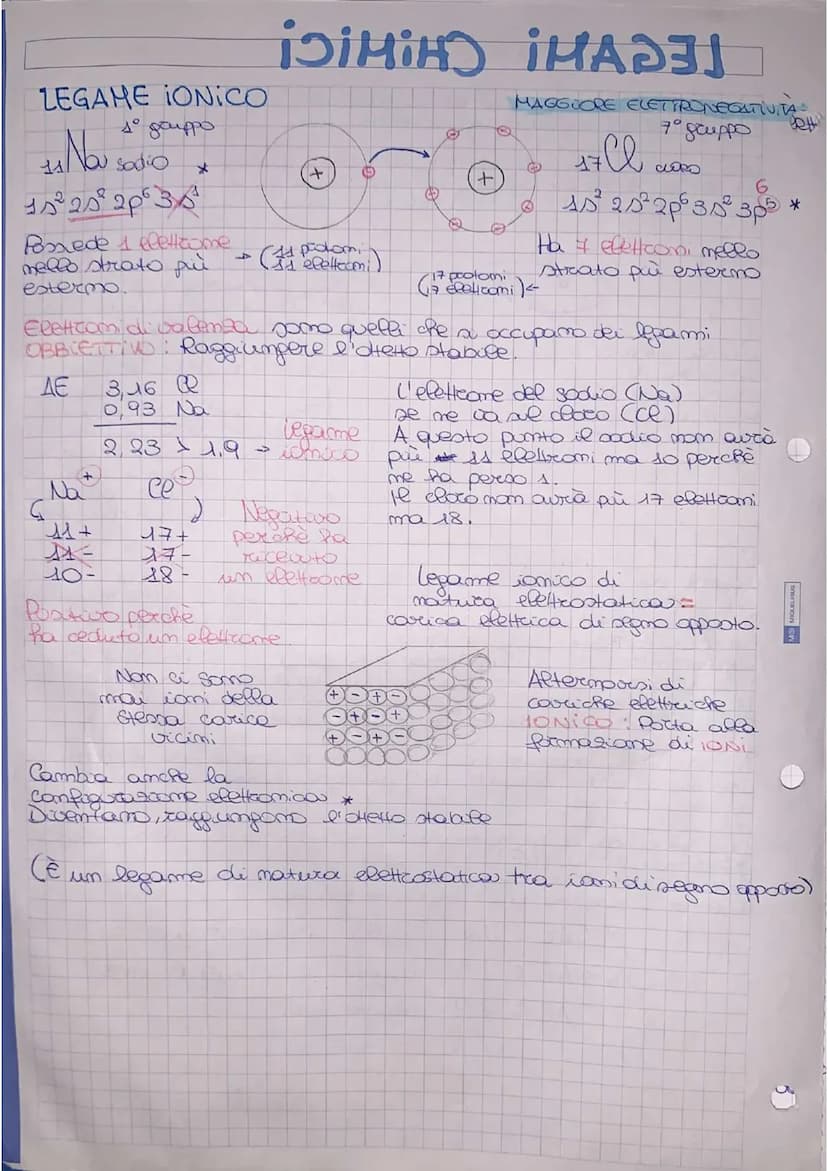 LEGAMI CHIMICI
LEGAME IONICO
MAGGIORE ELETTRONEGATIVITÀ
1° gruppo
7° gruppo
11Na sodio *
17Cl cloro
1s² 2s² 2p⁶ 3s¹
1s² 2s² 2p⁶ 3s² 3p⁵ 6 *
Possiede 1 elettrone
nello strato più
esterno.
→ (11 protoni
11 elettroni)
Ha 7 elettroni nello
strato più esterno
(17 protoni
17 elettroni) ←
Elettroni di valenza sono quelli che si occupano dei legami
OBBIETTIVO: Raggiungere l'ottetto stabile.
ΔE 3,16 Cl
0,93 Na
2,23 > 1,9 → legame
ionico
L'elettrone del sodio (Na)
se ne va sul cloro (Cl)
A questo punto il sodio non avrà
più 11 elettroni ma 10 perchè
ne ha perso 1.
Il cloro non avrà più 17 elettroni
ma 18.
Na⁺ Cl⁻
11+ 17+
11- 17-
10- 18-
Negativo
perchè ha
ricevuto
un elettrone
Positivo perchè
ha ceduto un elettrone
Legame ionico di
natura elettrostatica =
carica elettrica di segno opposto.
Non ci sono
mai ioni della
stessa carica
vicini
+ - + -
- + - +
+ - + -
Alternarsi di
cariche elettriche
IONICO: Porta alla
formazione di IONI
Cambia anche la
configurazione elettronica *
Diventano, raggiungono l'ottetto stabile
(È un legame di natura elettrostatica tra ioni di segno opposto)